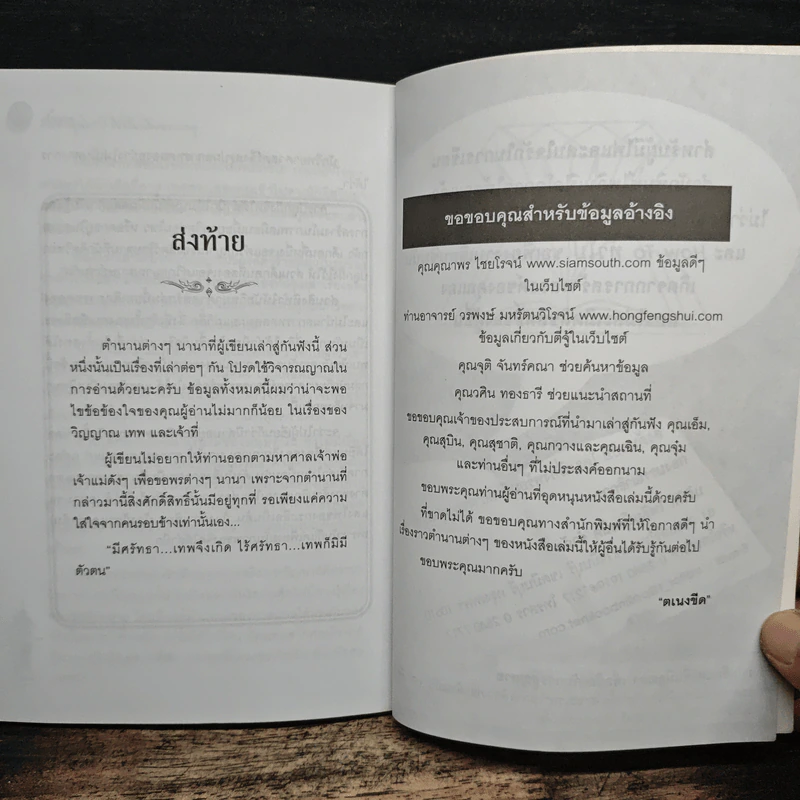 ส่งท้าย
ตำนานต่างๆ นานาที่ผู้เขียนเล่าสู่กันฟังนี้ ส่วน
หนึ่งนั้นเป็นเรื่องที่เล่าต่อๆ กัน โปรดใช้วิจารณญาณใน
การอ่านด้วยนะครับ ข้อมูลทั้งหมดนี้ผมว่าน่าจะพอ
ไขข้อข้องใจของคุณผู้อ่านไม่มากก็น้อย ในเรื่องของ
วิญญาณ เทพ และเจ้าที่
ผู้เขียนไม่อยากให้ท่านออกตามหาศาลเจ้าพ่อ
เจ้าแม่ดังๆ เพื่อขอพรต่างๆ นานา เพราะจากตำนานที่
กล่าวมานี้สิ่งศักดิ์สิทธิ์นั้นมีอยู่ทุกที่ รอเพียงแค่ความ
ใส่ใจจากคนรอบข้างเท่านั้นเอง...
“มีศรัทธา...เทพจึงเกิด ไร้ศรัทธา...เทพก็มิมี
ตัวตน”
ขอขอบคุณสำหรับข้อมูลอ้างอิง
คุณคุณาพร ไชยโรจน์ www.siamsouth.com ข้อมูลดีๆ
ในเว็บไซต์
ท่านอาจารย์ วรพงษ์ มหรัตนวิโรจน์ www.hongfengshui.com
ข้อมูลเกี่ยวกับตี่จู้ในเว็บไซต์
คุณจุติ จันทร์คณา ช่วยค้นหาข้อมูล
คุณวศิน ทองธารี ช่วยแนะนำสถานที่
ขอขอบคุณเจ้าของประสบการณ์ที่นำมาเล่าสู่กันฟัง คุณเอ็ม,
คุณสุบิน, คุณสุชาติ, คุณกวางและคุณเฉิน, คุณจุ๋ม
และท่านอื่นๆ ที่ไม่ประสงค์ออกนาม
ขอบพระคุณท่านผู้อ่านที่อุดหนุนหนังสือเล่มนี้ด้วยครับ
ที่ขาดไม่ได้ ขอขอบคุณทางสำนักพิมพ์ที่ให้โอกาสดีๆ นำ
เรื่องราวตำนานต่างๆ ของหนังสือเล่มนี้ให้ผู้อื่นได้รับรู้กันต่อไป
ขอบพระคุณมากครับ
“ตเนงขีด”